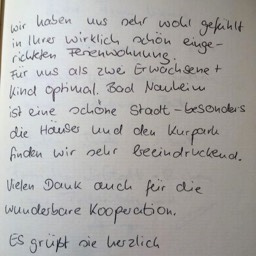 wir haben uns sehr wohl gefühlt
in Ihrer wirklich schön einge-
richteten Ferienwohnung.
Für uns als zwei Erwachsene +
Kind optimal. Bad Nauheim
ist eine schöne Stadt - besonders
die Häuser und den Kurpark
finden wir sehr beeindruckend.
Vielen Dank auch für die
wunderbare Kooperation.
Es grüßt sie herzlich